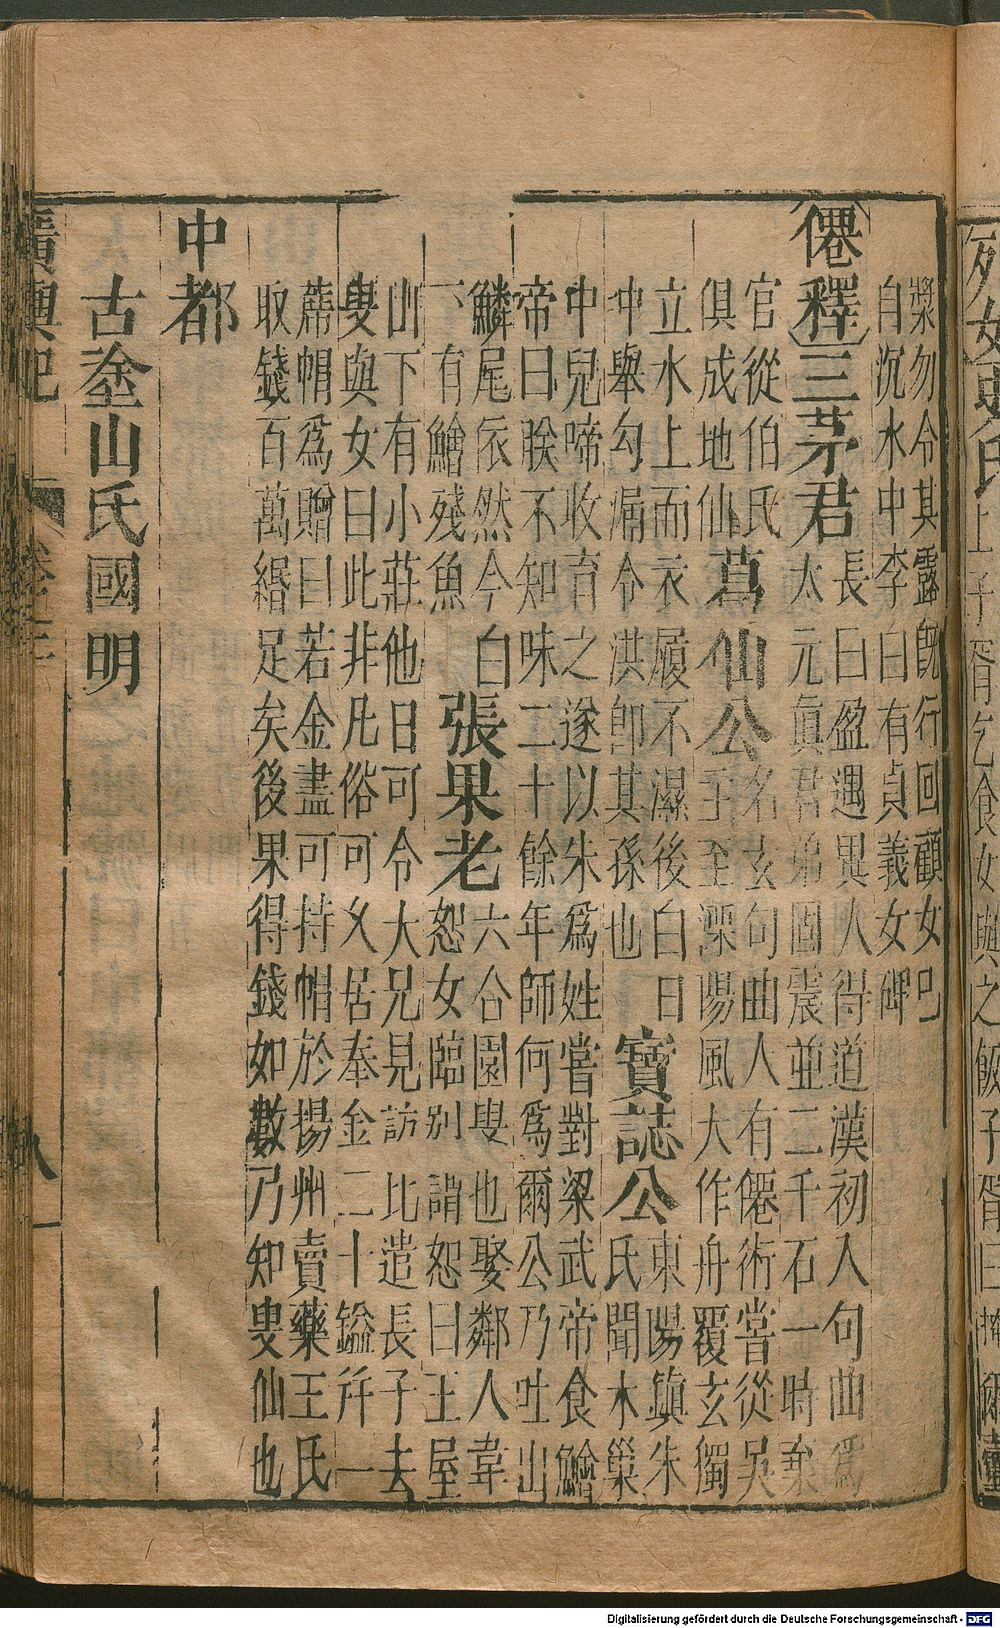 列女 史氏 上 子胥乞食女與之飯子胥曰掩爾壺
漿勿令其露旣行回顧女已
自沉水中李白有貞義女碑
僊釋 三茅君
長曰盈遇異人得道漢初入句曲爲
太元眞君弟固震並二千石一時棄
官從伯氏
俱成地仙
葛仙公
名玄句曲人有僊術嘗從吳
主至溧陽風大作舟覆玄獨
立水上而衣履不濕後白日
冲舉勾漏令洪卽其孫也
寶誌公
東陽鎮朱
氏聞木巢
中兒啼收育之遂以朱爲姓嘗對梁武帝食鱠
帝曰朕不知味二十餘年師何爲爾公乃吐出
鱗尾依然今白
下有鱠殘魚
張果老
六合園叟也娶鄰人韋
恕女臨別謂恕曰王屋
山下有小莊他日可令大兄見訪比遣長子去
叟與女曰此非凡俗可久居奉金二十鎰幷一
蓆帽爲贈曰若金盡可持帽於揚州賣藥王氏
取錢百萬緡足矣後果得錢如數乃知叟仙也
中都
古塗山氏國明
廣輿記 卷之二 八
Digitalisierung gefördert durch die Deutsche Forschungsgemeinschaft - DFG